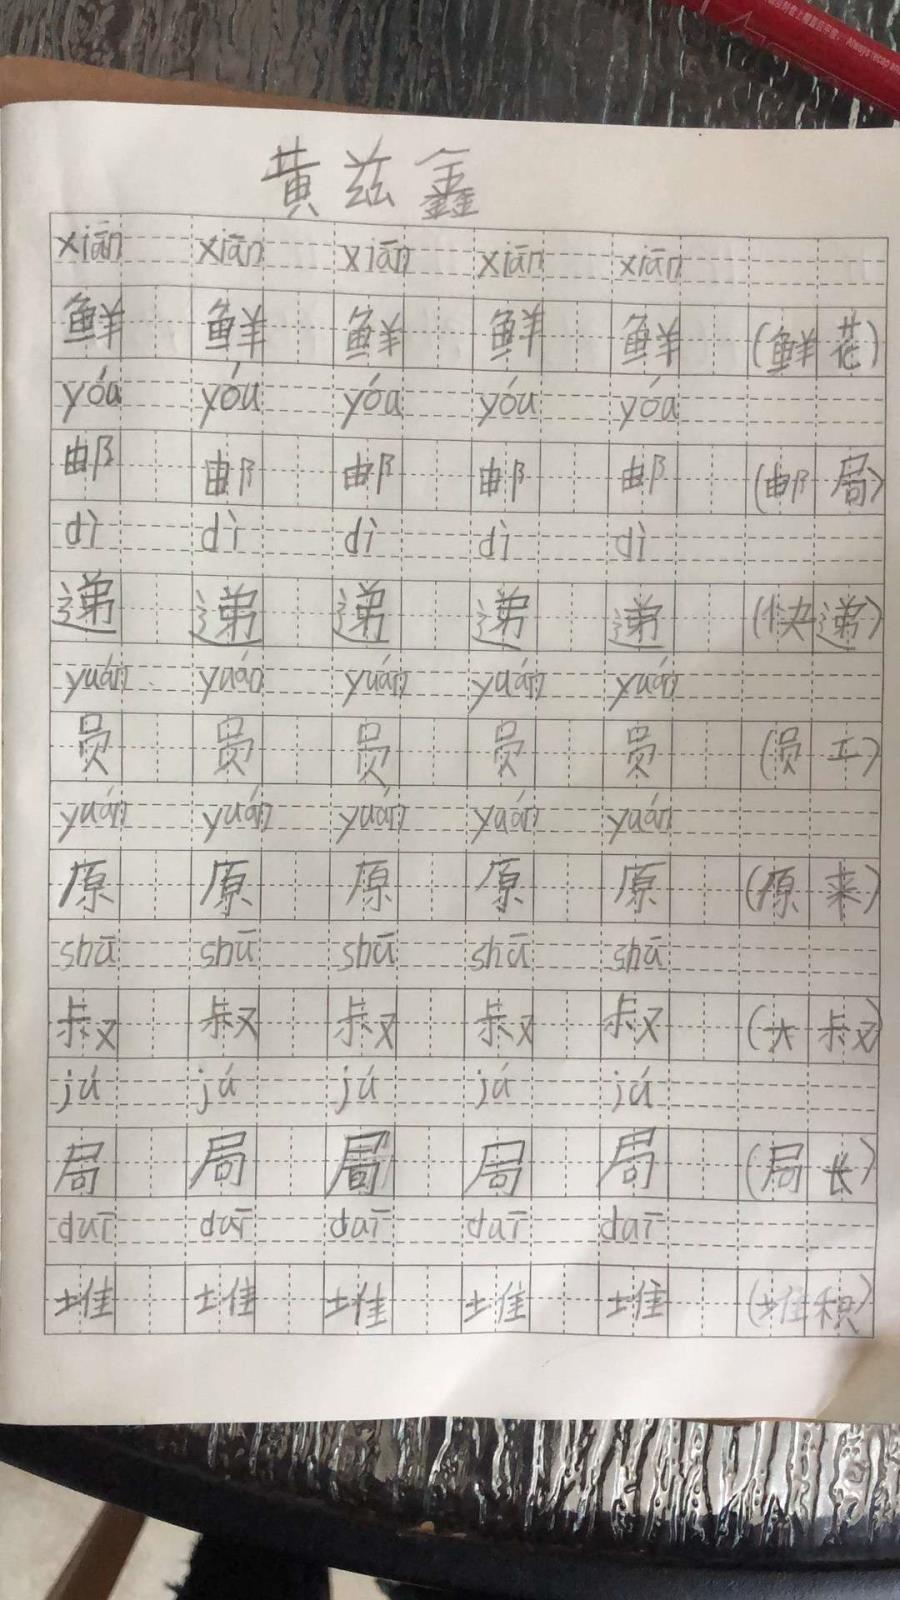 黄兹鑫
xiān xiān xiān xiān xiān
鲜 鲜 鲜 鲜 鲜 (鲜花)
yóu yóu yóu yóu yóu
邮 邮 邮 邮 邮 (邮局)
dì dì dì dì dì
递 递 递 递 递 (快递)
yuán yuán yuán yuán yuán
员 员 员 员 员 (员工)
yuán yuán yuán yuán yuán
原 原 原 原 原 (原来)
shū shū shū shū shū
叔 叔 叔 叔 叔 (大叔)
jú jú jú jú jú
局 局 局 局 局 (局长)
duī duī duī duī duī
堆 堆 堆 堆 堆 (堆积)